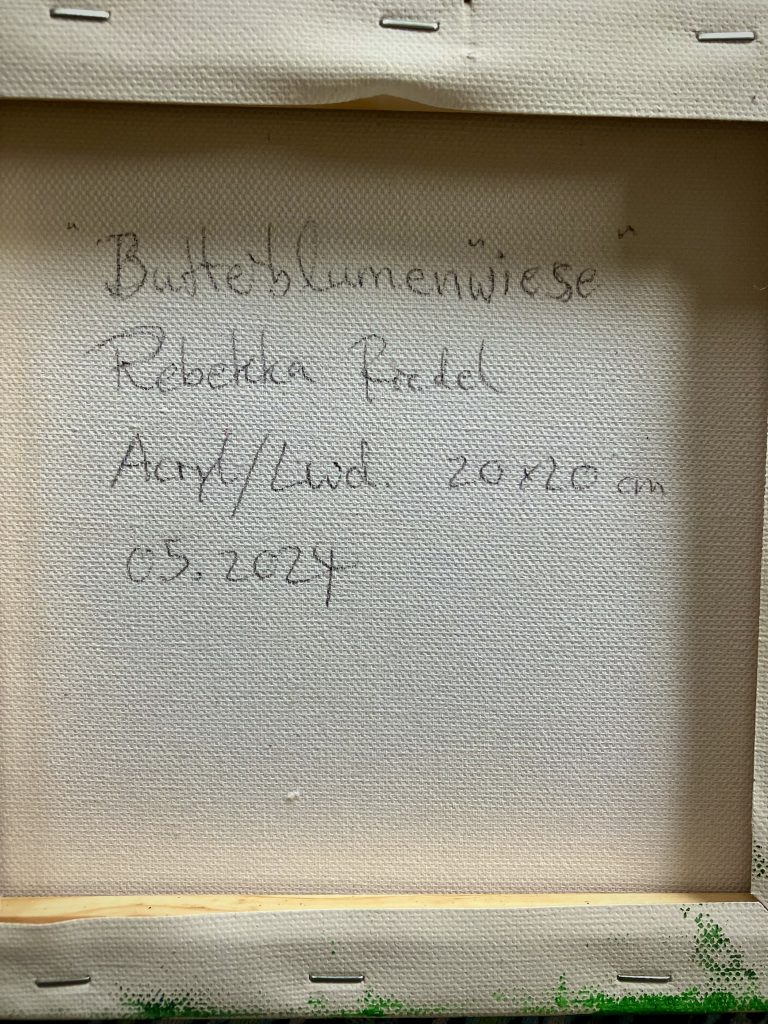 "Butterblumenwiese"
Rebekka Riedel
Acryl/Lwd. 20x20 cm
05.2024